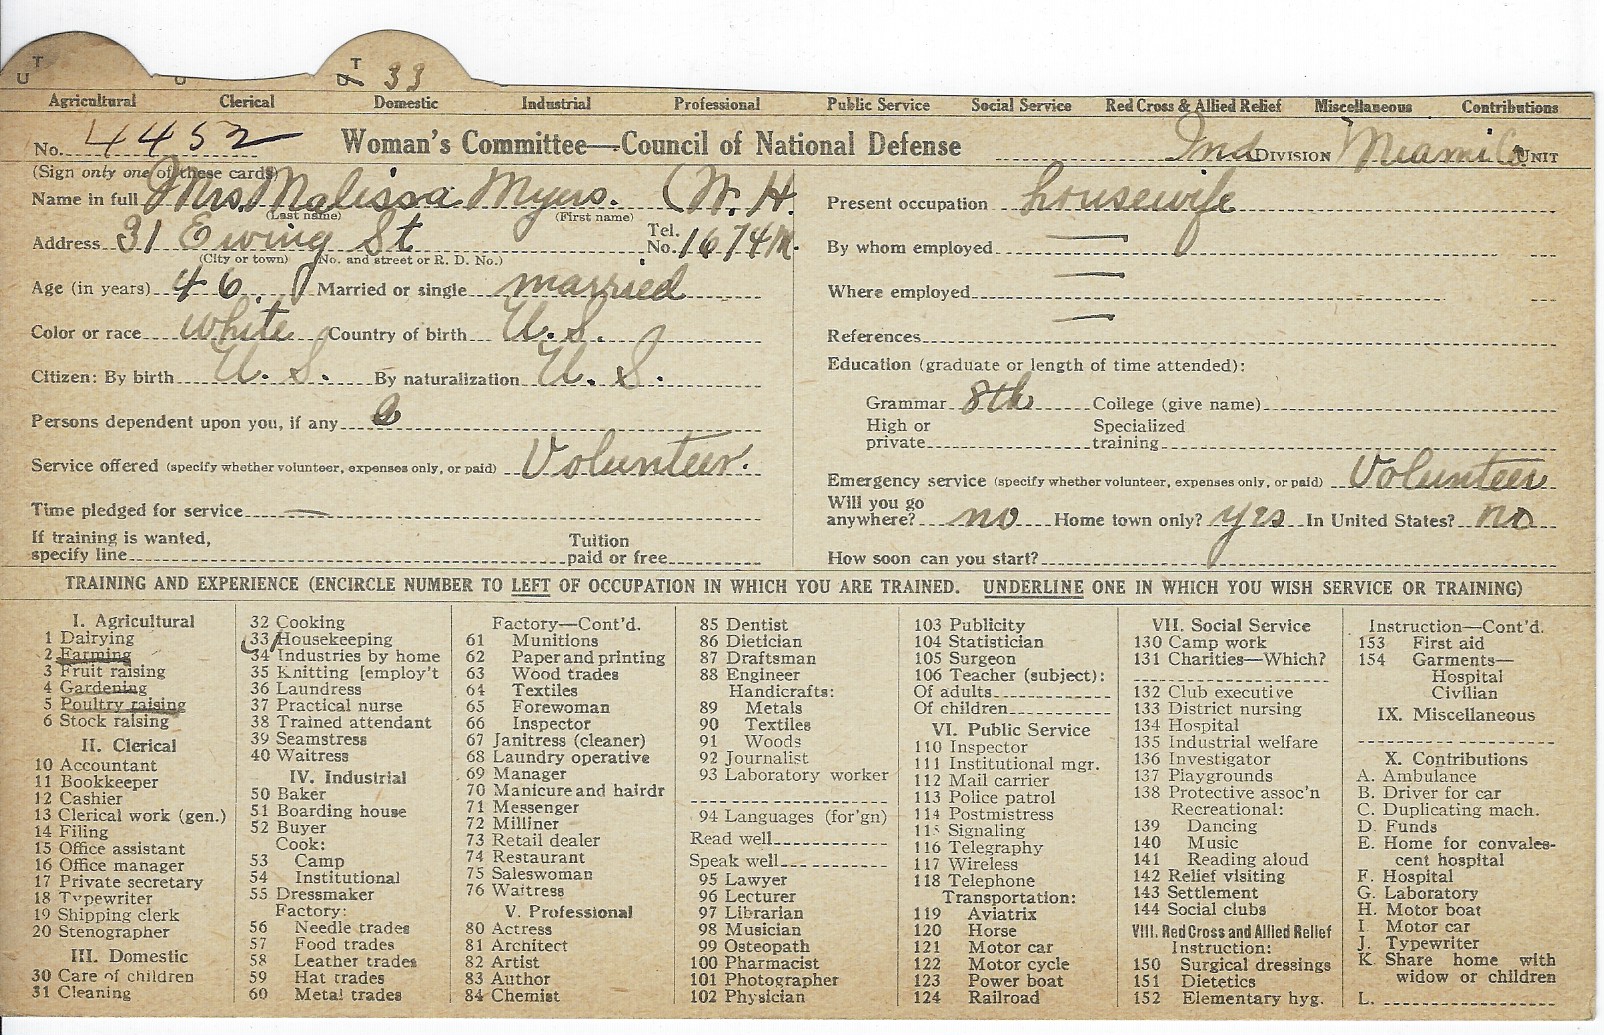 T
U
T
U 33
Agricultural Clerical Domestic Industrial Professional Public Service Social Service Red Cross & Allied Relief Miscellaneous Contributions
No. 4452 Woman's Committee—Council of National Defense Ind DIVISION Miami Co UNIT
(Sign only one of these cards)
Name in full Mrs. Malissa Myers. (W. H.
(Last name) (First name)
Address 31 Ewing St Tel. No. 1674M.
(City or town) (No. and street or R. D. No.)
Age (in years) 46. Married or single married
Color or race white Country of birth U. S.
Citizen: By birth U. S. By naturalization U. S.
Persons dependent upon you, if any
Service offered (specify whether volunteer, expenses only, or paid) Volunteer.
Time pledged for service —
If training is wanted, specify line Tuition paid or free
Present occupation housewife
By whom employed —
Where employed —
References —
Education (graduate or length of time attended):
Grammar 8th College (give name)
High or private Specialized training
Emergency service (specify whether volunteer, expenses only, or paid) Volunteer
Will you go anywhere? no Home town only? yes In United States? no
How soon can you start?
TRAINING AND EXPERIENCE (ENCIRCLE NUMBER TO LEFT OF OCCUPATION IN WHICH YOU ARE TRAINED. UNDERLINE ONE IN WHICH YOU WISH SERVICE OR TRAINING)
I. Agricultural
1 Dairying
2 Farming
3 Fruit raising
4 Gardening
5 Poultry raising
6 Stock raising
II. Clerical
10 Accountant
11 Bookkeeper
12 Cashier
13 Clerical work (gen.)
14 Filing
15 Office assistant
16 Office manager
17 Private secretary
18 Typewriter
19 Shipping clerk
20 Stenographer
III. Domestic
30 Care of children
31 Cleaning
32 Cooking
33 Housekeeping
34 Industries by home
35 Knitting [employ't
36 Laundress
37 Practical nurse
38 Trained attendant
39 Seamstress
40 Waitress
IV. Industrial
50 Baker
51 Boarding house
52 Buyer
Cook:
53 Camp
54 Institutional
55 Dressmaker
Factory:
56 Needle trades
57 Food trades
58 Leather trades
59 Hat trades
60 Metal trades
Factory—Cont'd.
61 Munitions
62 Paper and printing
63 Wood trades
64 Textiles
65 Forewoman
66 Inspector
67 Janitress (cleaner)
68 Laundry operative
69 Manager
70 Manicure and hairdr
71 Messenger
72 Milliner
73 Retail dealer
74 Restaurant
75 Saleswoman
76 Waitress
V. Professional
80 Actress
81 Architect
82 Artist
83 Author
84 Chemist
85 Dentist
86 Dietician
87 Draftsman
88 Engineer
Handicrafts:
89 Metals
90 Textiles
91 Woods
92 Journalist
93 Laboratory worker
94 Languages (for'gn)
Read well
Speak well
95 Lawyer
96 Lecturer
97 Librarian
98 Musician
99 Osteopath
100 Pharmacist
101 Photographer
102 Physician
103 Publicity
104 Statistician
105 Surgeon
106 Teacher (subject):
Of adults
Of children
VI. Public Service
110 Inspector
111 Institutional mgr.
112 Mail carrier
113 Police patrol
114 Postmistress
115 Signaling
116 Telegraphy
117 Wireless
118 Telephone
Transportation:
119 Aviatrix
120 Horse
121 Motor car
122 Motor cycle
123 Power boat
124 Railroad
VII. Social Service
130 Camp work
131 Charities—Which?
132 Club executive
133 District nursing
134 Hospital
135 Industrial welfare
136 Investigator
137 Playgrounds
138 Protective assoc'n
Recreational:
139 Dancing
140 Music
141 Reading aloud
142 Relief visiting
143 Settlement
144 Social clubs
VIII. Red Cross and Allied Relief
Instruction:
150 Surgical dressings
151 Dietetics
152 Elementary hyg.
Instruction—Cont'd.
153 First aid
154 Garments—
Hospital
Civilian
IX. Miscellaneous
X. Contributions
A. Ambulance
B. Driver for car
C. Duplicating mach.
D. Funds
E. Home for convales-
cent hospital
F. Hospital
G. Laboratory
H. Motor boat
I. Motor car
J. Typewriter
K. Share home with
widow or children
L.